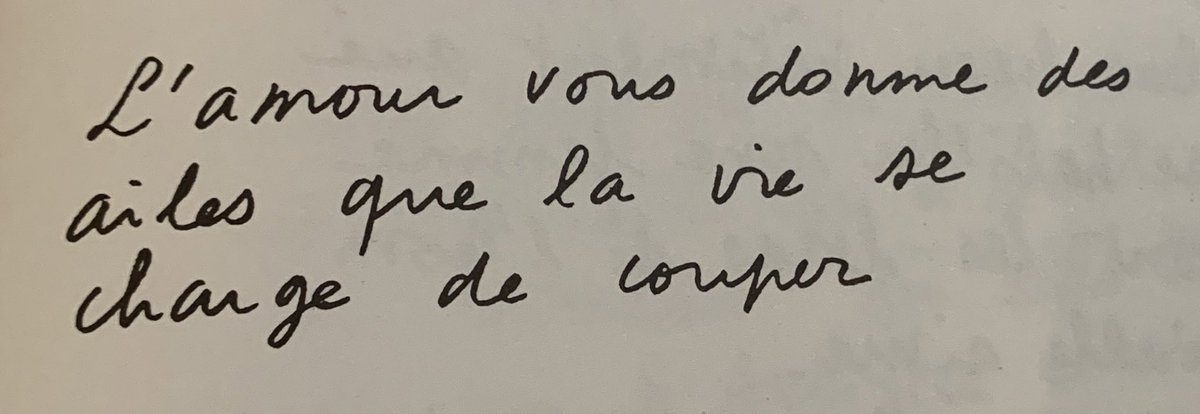 L'amour vous donne des
ailes que la vie se
charge de couper